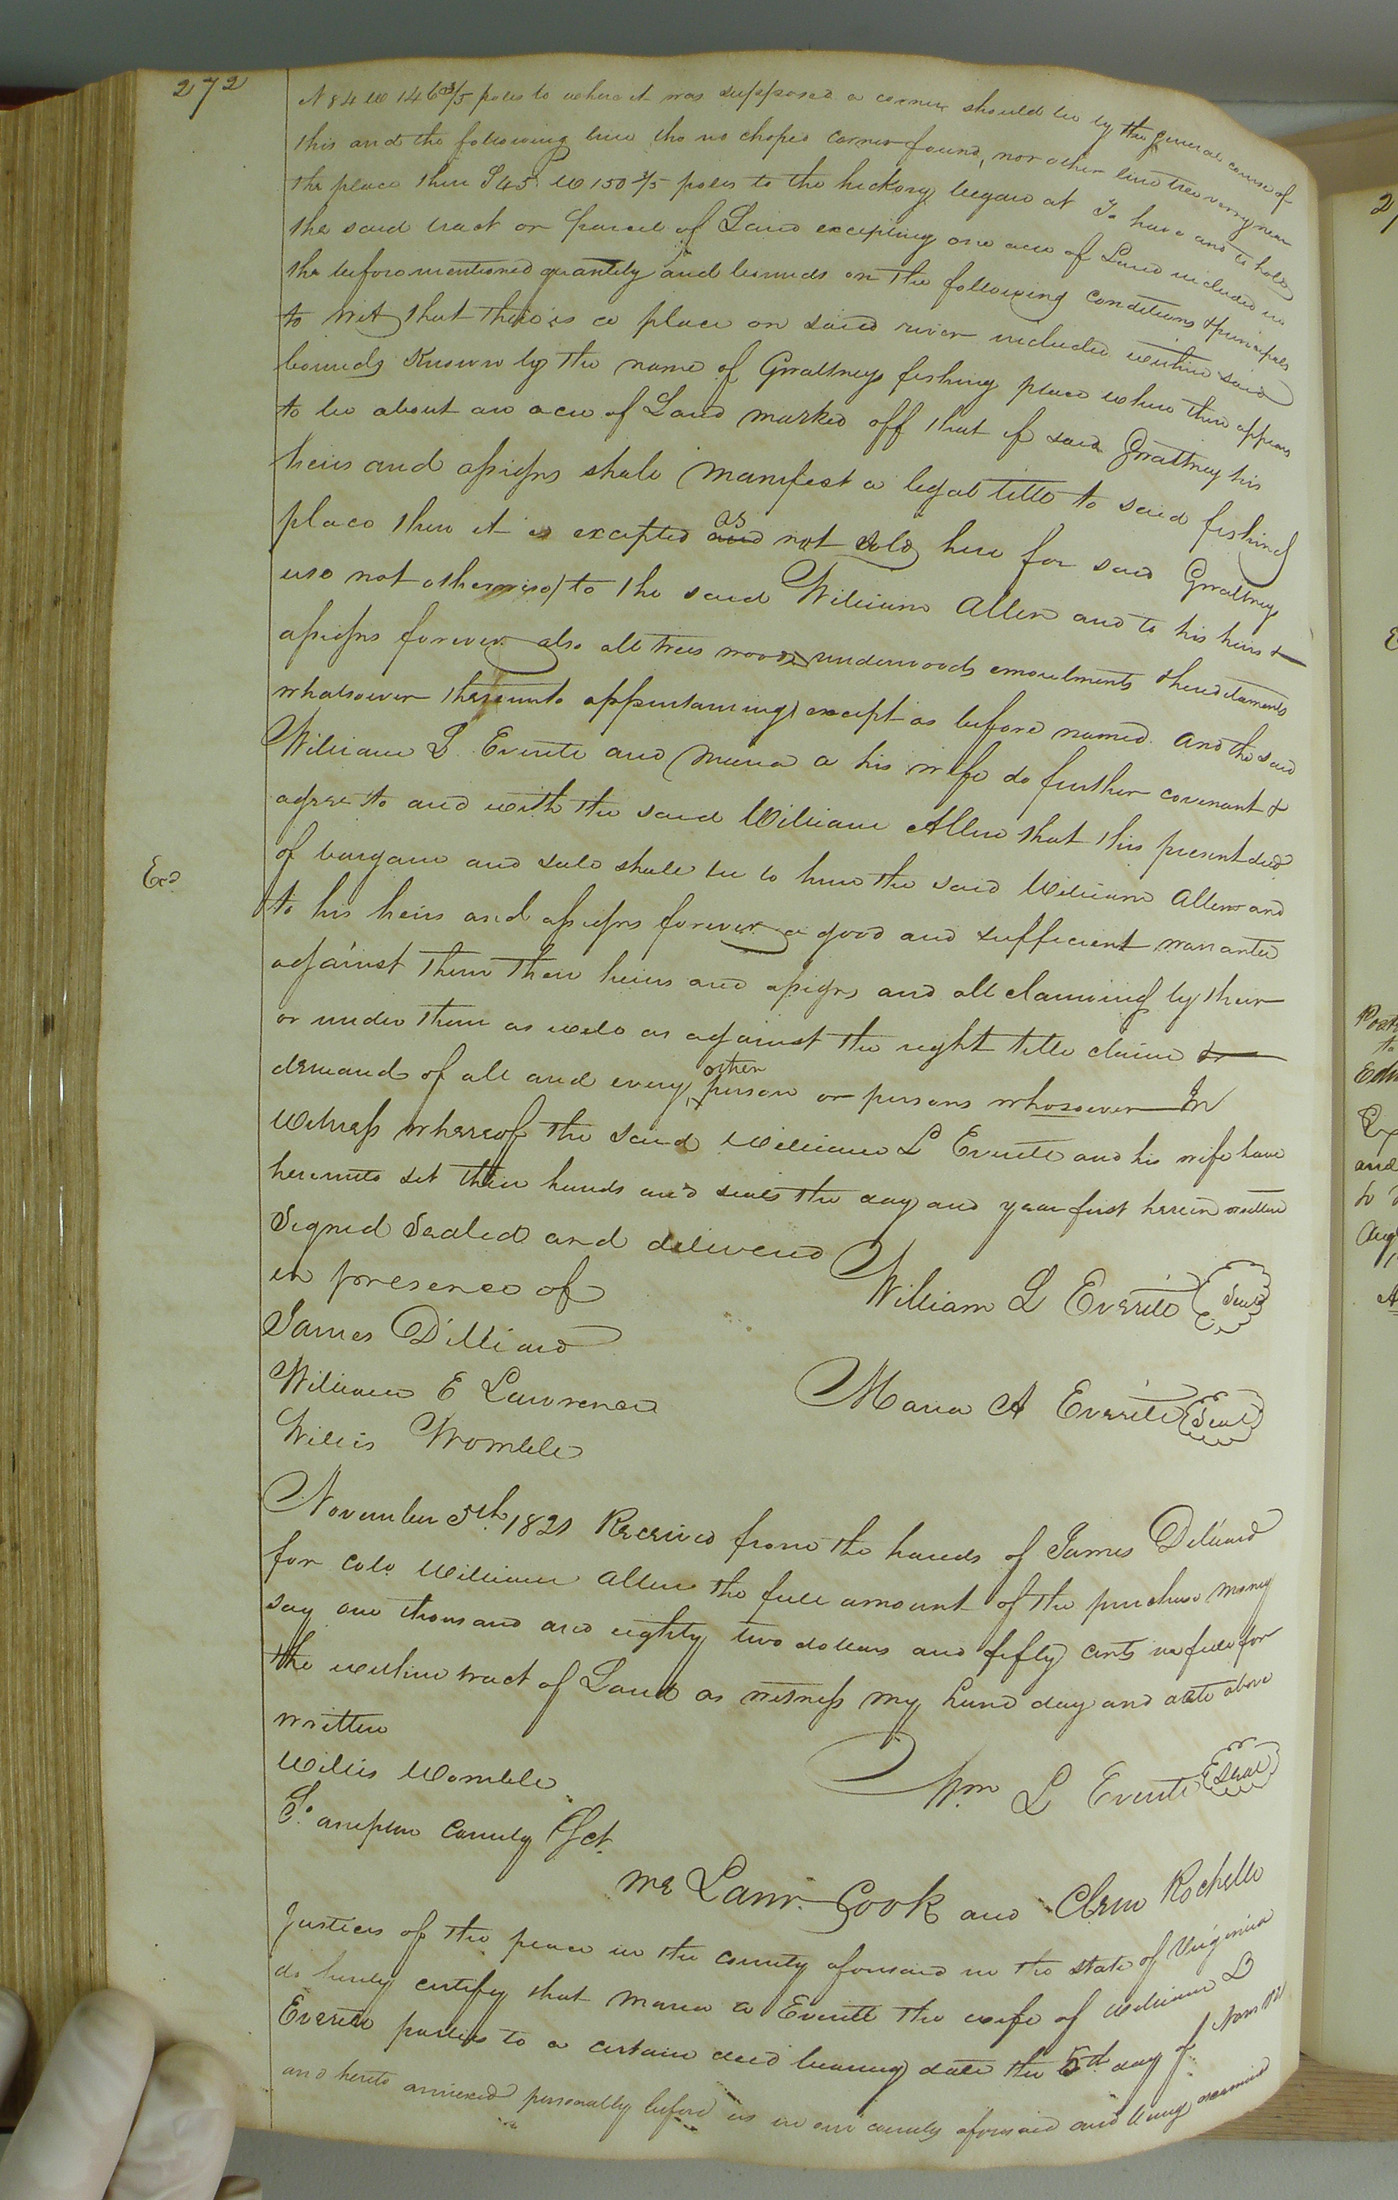 272
N 84 W 146 3/5 poles to where it was supposed a corner should be by the general course of
this and the following line tho no choped corner found, nor other line tree verry near
the place then S 45 W 150 2/5 poles to the hickory began at To have and to hold
the said tract or parcel of Land excepting one acre of Land included in
the beforementioned quantity and bounds on the following conditions & principals
to wit that there is a place on said river included within said
bounds known by the name of Gwaltneys fishing place where there appears
to be about an acre of Land marked off that if said Gwaltney his
heirs and assigns shall manifest a legal title to said fishing
place then it is excepted as and not sold here for said Gwaltneys
use not otherwise) to the said William Allen and to his heirs &
assigns forever also all trees woods underwoods emoulments & heredaments
whatsoever thereunto appurtaining) except as before named. And the said
William L Everitt and Maria A his wife do further covenant &
agree to and with the said William Allen that this present deed
of bargain and sale shall be to him the said William Allen and
Exd
to his heirs and assigns forever a good and sufficient warrantee
against them their heirs and assigns and all claiming by their
or under them as well as against the right title claim &
demand of all and every other person or persons whosoever In
Witness whereof the said William L Everitt and his wife have
hereunto set their hands and seals the day and year first herein written
Signed Sealed and delivered
in presence of
William L Everitt Seal
James Dilliard
William E Lawrence
Maria A Everitt Seal
Willis Womble
November 5th. 1821 Received from the hands of James Dilliard
for Colo William Allen the full amount of the purchase money
say one thousand and eighty two dollars and fifty cents in full for
the within tract of Land as witness my hand day and date above
written
Willis Womble
Wm L Everitt Seal
So. ampton County Sct.
We Lawr. Cook and Clem Rochelle
Justices of the peace in the county aforesaid in the state of Virginia
do hereby certify that Maria A Everitt the wife of William L
Everitt parties to a certain deed bearing date the 5th day of Novr
and hereto annexed personally before us in our county aforesaid and being examined